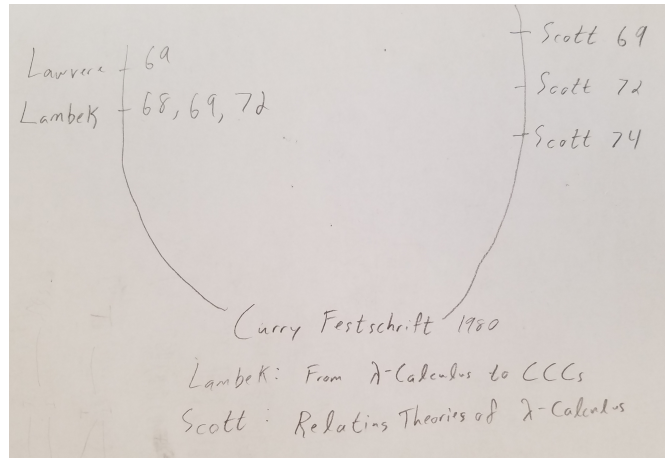 Lawvere 69
Lambek 68, 69, 72
Scott 69
Scott 72
Scott 74
Curry Festschrift 1980
Lambek: From λ-Calculus to CCCs
Scott: Relating Theories of λ-Calculus